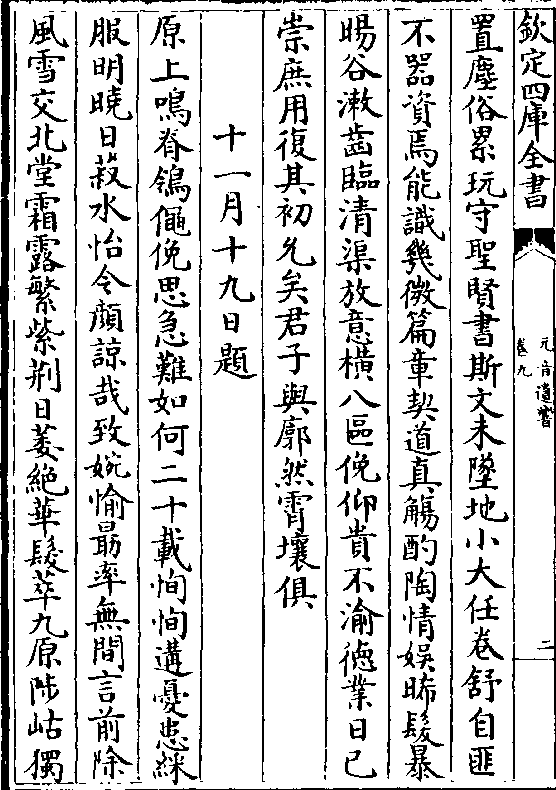 欽定四庫全書
元音遺響
卷九
二
置塵俗累玩守聖賢書斯文未墜地小大任卷舒自匪
不器資焉能識幾微篇章契道真觴酌陶情娛晞髮暴
暘谷漱齒臨清渠放意橫八區俛仰貴不渝德業日已
崇庶用復其初允矣君子與廓然霄壤俱
十一月十九日題
原上鳴脊鴒僶俛思急難如何二十載恂恂遘憂患綵
服明曉日菽水怡令顏諒哉致婉愉勗率無間言前除
風雪交北堂霜露繁紫荆日萎絶華髮萃九原陟岵獨